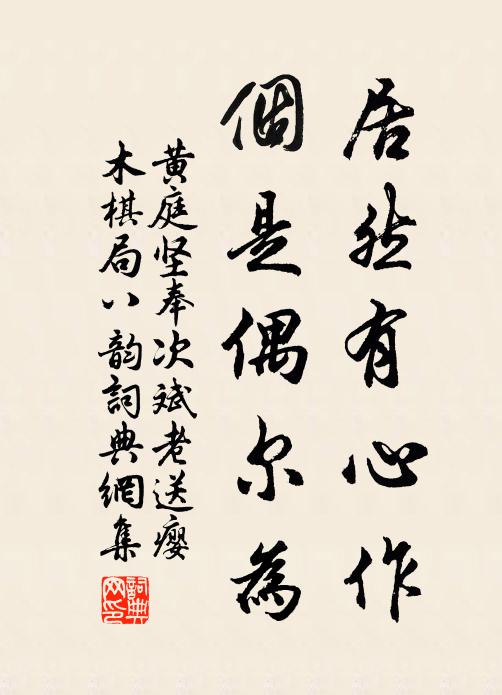 居然有心作
個是偶尔為
黄庭坚奉次斌老送瘿
木棋局八韵詞典網集